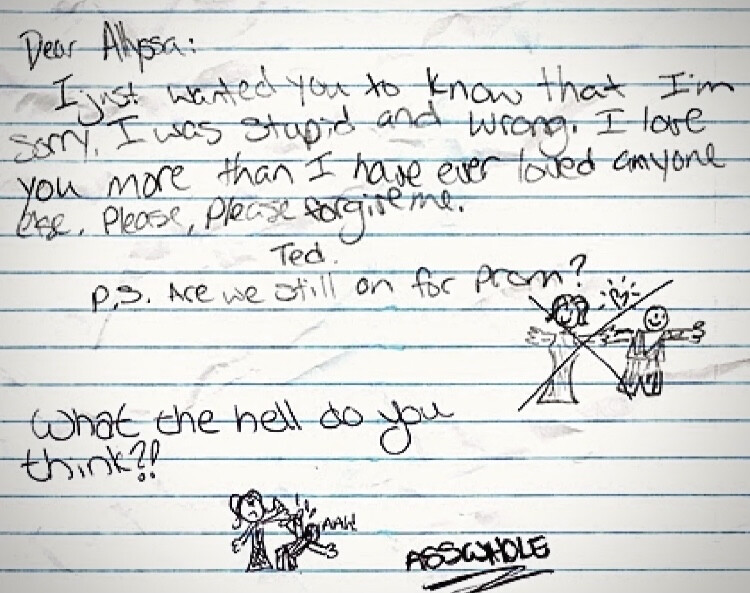 Dear Allyssa:
I just wanted you to know that I'm
sorry. I was stupid and wrong. I love
you more than I have ever loved anyone
else. Please, please forgive me.
Ted.
P.S. Are we still on for prom?
What the hell do you
think?!
AAH!
ASSWHOLE